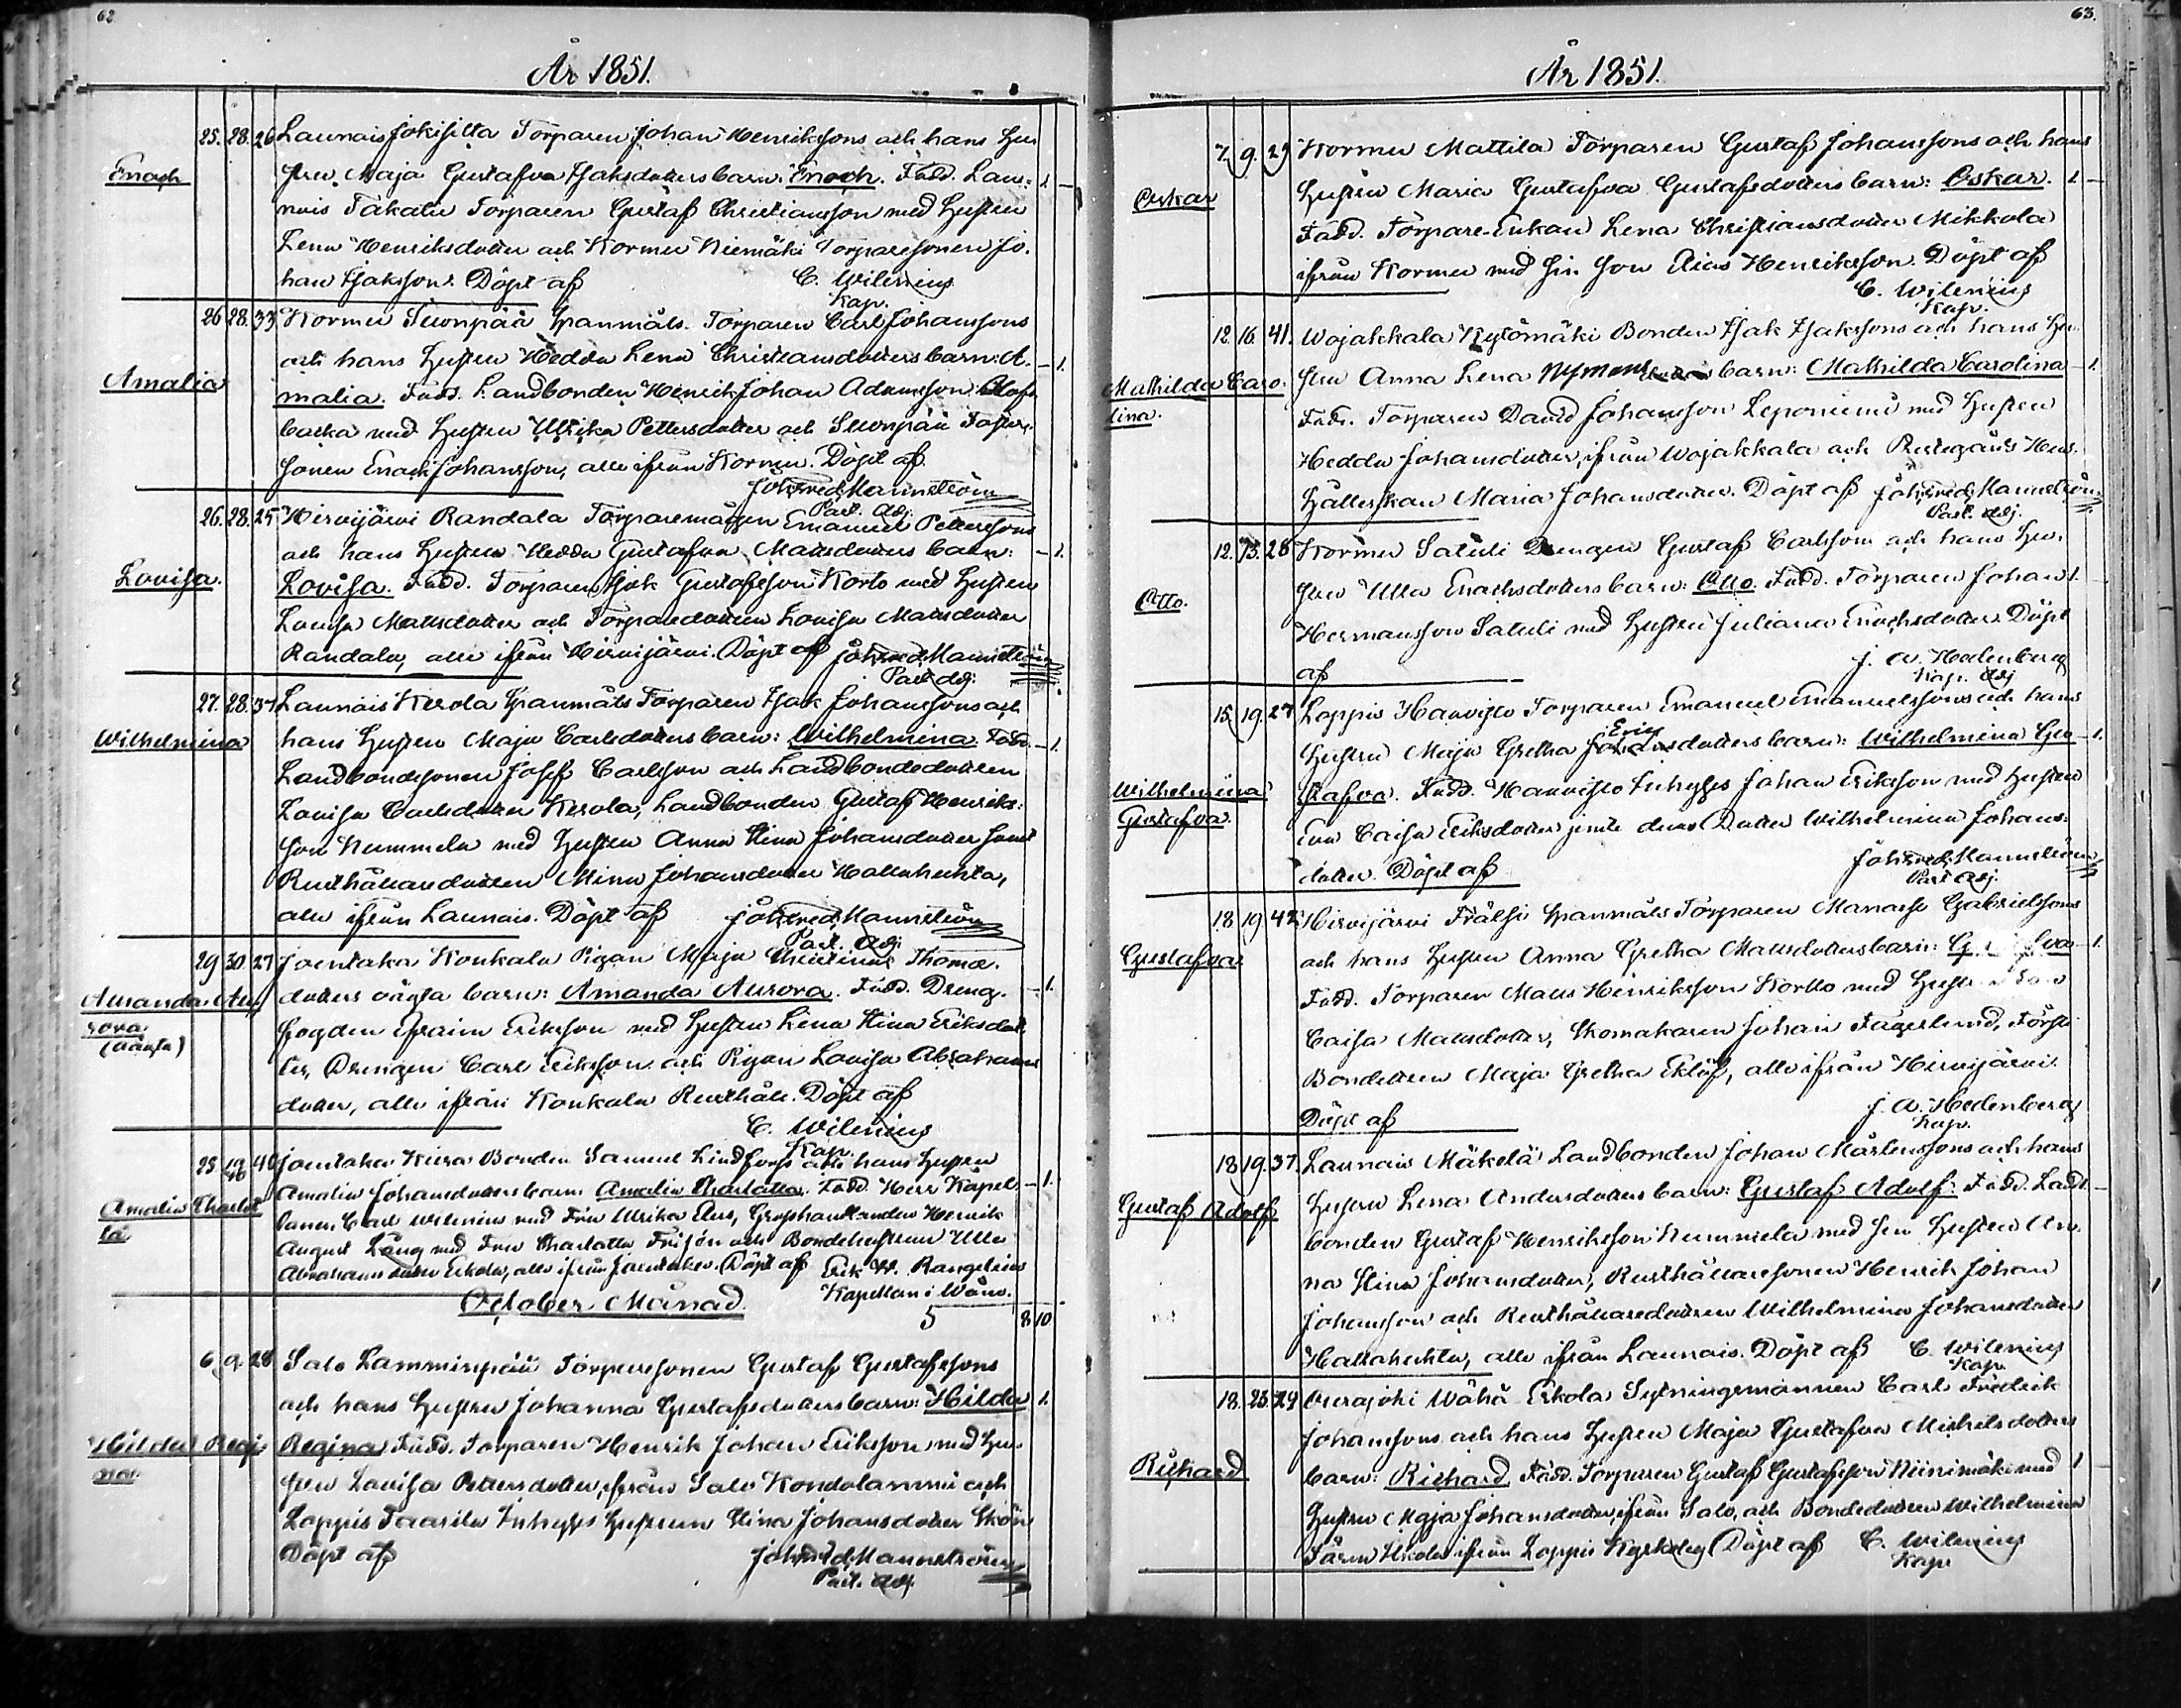 62
År 1851.
25. 28. 26 Launais Jokisilta Torparen Johan Henrikssons och hans Hu-
Enoch
stru Maja Gustafva Isaksdotters barn: Enoch. Fadd. Lau- 1. –
nais Takala Torparen Gustaf Christiansson med Hustru
Lena Henriksdotter och Kormu Niemäki Torparesonen Jo-
han Isaksson. Döpt af C. Wilenius
Kap.
26 28. 33 Kormu Suonpää Spanmåls Torparen Carl Johanssons
och hans Hustru Hedda Lena Christiansdotters barn: A- – 1.
Amalia
malia. Fadd. Landbonden Henrik Johan Adamsson
backa med Hustru Ulrika Pettersdotter och Suonpää Torpare-
sonen Enoch Johansson, alla ifrån Kormu. Döpt af
Joh. Fred. Mannström
Past. Adj.
26. 28. 25 Hirvijärvi Randala Torparemågen Emanuel Petterssons
och hans Hustru Hedda Gustafva Mattsdotters barn: – 1.
Lovisa.
Lovisa. Fadd. Torparen Isak Gustafsson Korto med Hustru
Lovisa Mattsdotter och Torparedottren Lovisa Mattsdotter
Randala, alla ifrån Hirvijärvi. Döpt af Joh. Fred. Mannström
Past. Adj.
27. 28. 37 Launais Kerola Spanmåls Torparen Isak Johanssons och
Wilhelmina
hans Hustru Maja Carlsdotters barn: Wilhelmina. Fadd. – 1.
Landbondesonen Josef Carlsson och Landbondedottren
Lovisa Carlsdotter Kerola, Landbonden Gustaf Henriks-
son Nummela med Hustru Anna Stina Johansdotter samt
Rusthållaredottren Mina Johansdotter Hallahuhta,
alla ifrån Launais. Döpt af Joh. Fred. Mannström
Past. Adj.
29 30 27 Joentaka Konkala Pigan Maja Christina Thomæ-
Amanda Au-
rora
(oäkta)
dotters oägta barn: Amanda Aurora. Fadd. Dreng- – 1.
fogden Efraim Eriksson med Hustru Lena Stina Eriksdot-
ter, Drengen Carl Eriksson och Pigan Lovisa Abrahams
dotter, alla ifrån Konkala Rusthåll. Döpt af
C. Wilenius
Kap.
25 40 Joentaka Kiira Bonden Samuel Lindfors och hans Hustru
Amalia Charlot
ta
Amalia Johansdotters barn Amalia Charlotta. Fadd. Herr Kapel- – 1.
lanen Carl Wilenius med Fru Ulrika, Grosshandlanden Henrik
August Lång med Fru Charlotta och Bondehustrun Ulla
Abrahamsdotter Erkola, alla ifrån Joentaka. Döpt af Erik W. Rangelius
Kapellan i Wåno.
October Månad. 5 8 10
6. 9. 28 Salo Lamminpää Torparesonen Gustaf Gustafssons
och hans Hustru Johanna Gustafsdotters barn: Hilda 1.
Hilda Regi-
na.
Regina. Fadd. Torparen Henrik Johan Eriksson med Hu-
stru Lovisa Pettersdotter, ifrån Salo Kondolammi och
Loppis Taarila Inhyses Hustrun Stina Johansdotter Skön
Döpt af Joh. Fred. Mannström
Past. Adj.
63.
År 1851.
7. 9. 29 Kormu Mattila Torparen Gustaf Johanssons och hans
Oskar
Hustru Maria Gustafva Gustafsdotters barn: Oskar. 1. –
Fadd. Torpare-Enkan Lena Christiansdotter Mikkola
ifrån Kormu med sin Son Elias Henriksson. Döpt af
C. Wilenius
Kap.
12. 16. 41. Wojakkala Kytömäki Bonden Isak Isakssons och hans Hu-
Mathilda Caro-
lina.
stru Anna Lena Nymans barn: Mathilda Carolina – 1.
Fadd. Torparen David Johansson Leponiemi med Hustru
Hedda Johansdotter, ifrån Wojakkala och Prestegårds Hus-
hållerskan Maria Johansdotter. Döpt af Joh. Fred. Mannström
Past. Adj.
12. 13. 28 Kormu Satuli Drengen Gustaf Carlssons och hans Hu-
Otto.
stru Ulla Enochsdotters barn: Otto. Fadd. Torparen Johan 1.
Hermansson Satuli med Hustru Juliana Enochsdotter. Döpt
af J. A. Hedenberg
Kap. Adj
15. 19. 27 Loppis Hanvisto Torparen Emanuel Emanuelssons och hans
Eric
Hustru Maja Gretha Johansdotters barn: Wilhelmina Gu- – 1.
Wilhelmina
Gustafva.
stafva. Fadd. Hanvisto Inhyses Johan Eriksson med Hustru
Eva Caisa Eriksdotter jemte deras Dotter Wilhelmina Johans-
dotter. Döpt af Joh. Fred. Mannström
Past Adj.
18 19 42 Hirvijärvi Frälsi Spanmåls Torparen Manasse Gabrielssons
Gustafva
och hans Hustru Anna Gretha Mattsdotters barn: G fva – 1.
Fadd. Torparen Matts Henriksson Kortto med Hustr
Caisa Mattsdotter, Skomakaren Johan Fagerlund,
Bondottren Maja Gretha Eklöf, alla ifrån Hirvijärvi.
Döpt af J. A. Hedenberg
Kap.
18 19. 37. Launais Mäkelä Landbonden Johan Mårtenssons och hans
Gustaf Adolf
Hustru Lena Andersdotters barn: Gustaf Adolf. Fadd. Land- –
bonden Gustaf Henriksson Nummela med sin Hustru An-
na Stina Johansdotter, Rusthållaresonen Henrik Johan
Johansson och Rusthållaredottren Wilhelmina Johansdotter
Hallahuhta, alla ifrån Launais. Döpt af C. Wilenius
Kap.
18. 23. 29 Ourajoki Wähä Erkola Sytningsmannen Carl Fredrik
Johanssons och hans Hustru Maja Gustafva Michelsdotters
Richard
barn: Richard. Fadd. Torparen Gustaf Gustafsson Niinimäki med 1
Hustru Maja Johansdotter, ifrån Salo, och Bondedottren Wilhelmina
ifrån Loppis Kyrkoby Döpt af C. Wilenius
Kap